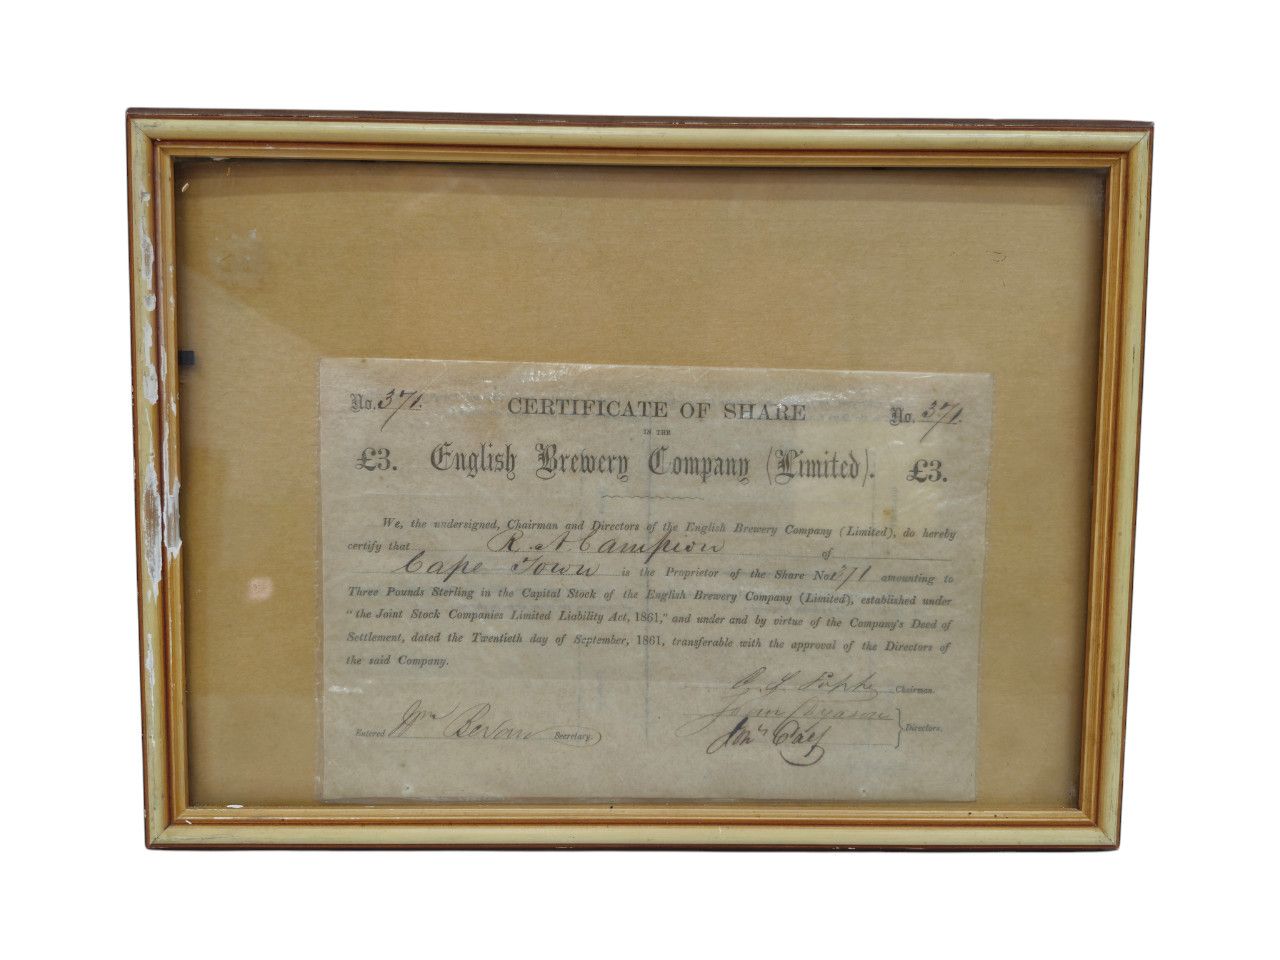 No. 371. CERTIFICATE OF SHARE No. 371.
IN THE
£3. English Brewery Company (Limited). £3.
We, the undersigned, Chairman and Directors of the English Brewery Company (Limited), do hereby
certify that R. A. Campion of
Cape Town is the Proprietor of the Share No. 371 amounting to
Three Pounds Sterling in the Capital Stock of the English Brewery Company (Limited), established under
"the Joint Stock Companies Limited Liability Act, 1861," and under and by virtue of the Company's Deed of
Settlement, dated the Twentieth day of September, 1861, transferable with the approval of the Directors of
the said Company.
Chairman.
Entered Wm Bevan Secretary. Directors.